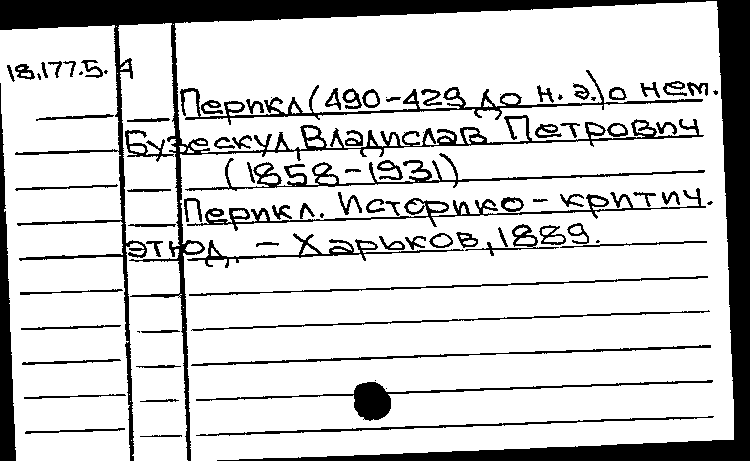 18.177.5.4
Перикл (490-429 до н. э.) о нем.
Бузескул, Владислав Петрович
(1858-1931)
Перикл. Историко-критич.
этюд. - Харьков, 1889.